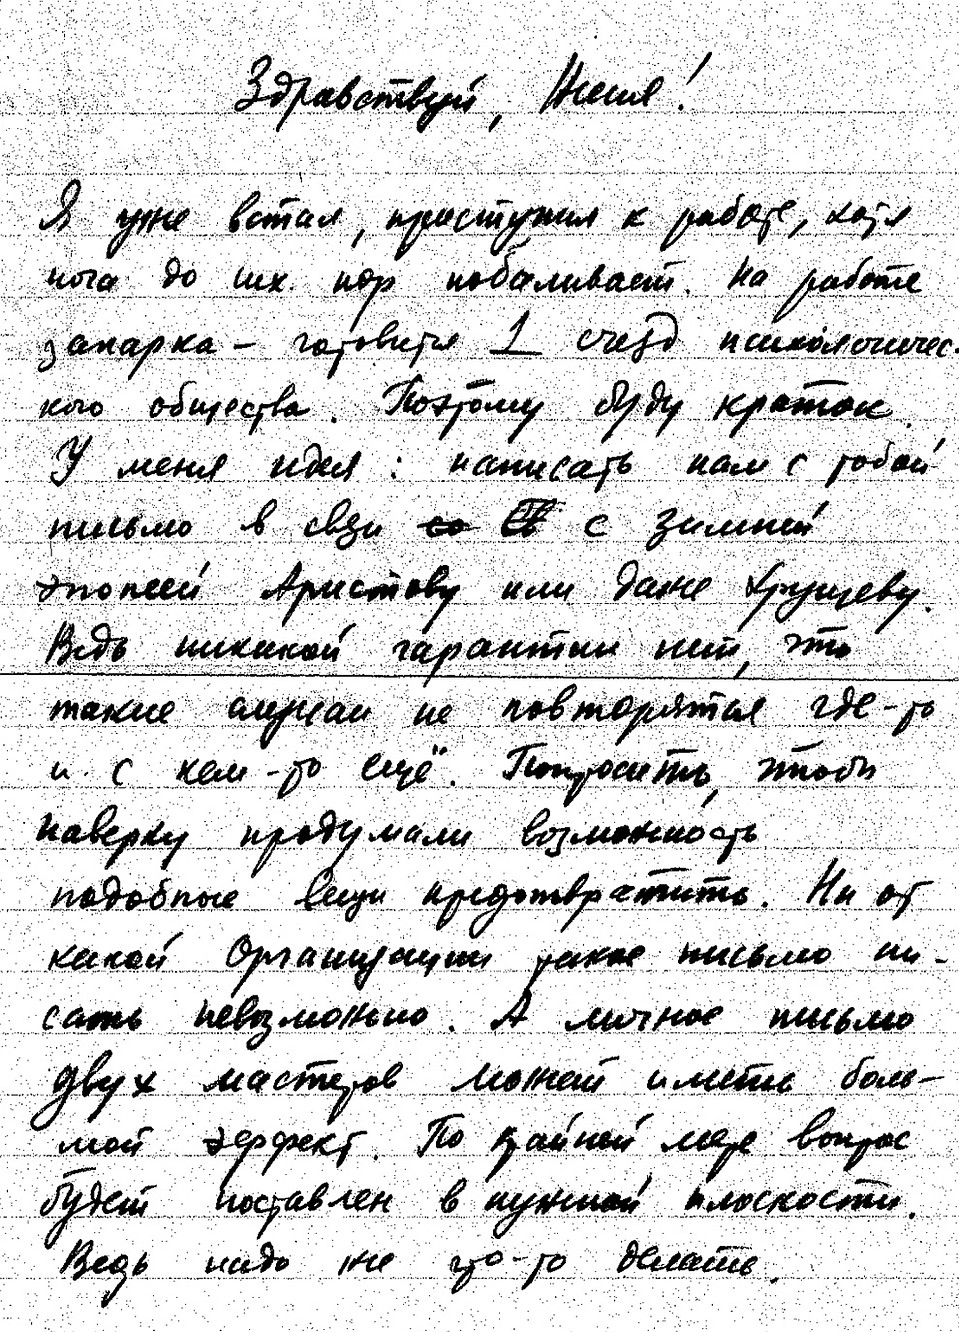 Здравствуй, Женя!
Я уже встал, приступил к работе, хотя
нога до сих пор побаливает. На работе
запарка – готовится 1 съезд психологичес-
кого общества. Поэтому буду краток.
У меня идея: написать нам с тобой
письмо в связи с зимней
эпопеей Аристову или даже Хрущеву.
Ведь никакой гарантии нет, что
такие случаи не повторятся где-то
и с кем-то ещё. Попросить, чтобы
наверху продумали возможность
подобные вещи предотвратить. Ни от
какой Организации такое письмо пи-
сать невозможно. А личное письмо
двух мастеров может иметь боль-
шой эффект. По крайней мере вопрос
будет поставлен в нужной плоскости.
Ведь надо же что-то делать.